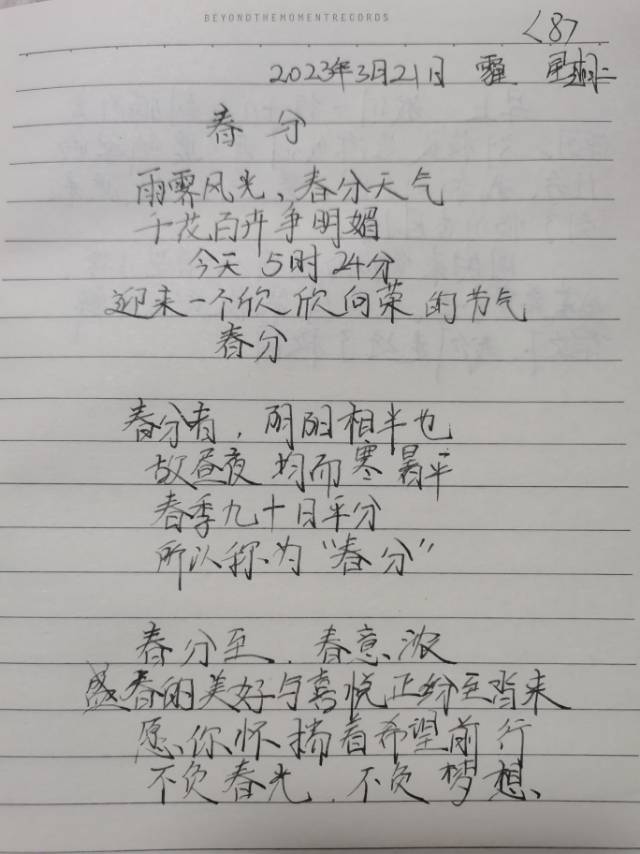 BEYONDTHEMOMENTRECORDS
<8>
2023年3月21日 霾 星期二
春分
雨霁风光、春分天气
千花百卉争明媚
今天5时24分
迎来一个欣欣向荣的节气
春分
春分者，阴阳相半也
故昼夜均而寒暑平
春季九十日平分
所以称为“春分”
春分至、春意浓
盛春的美好与喜悦正纷至沓来
愿你怀揣着希望前行
不负春光、不负梦想、